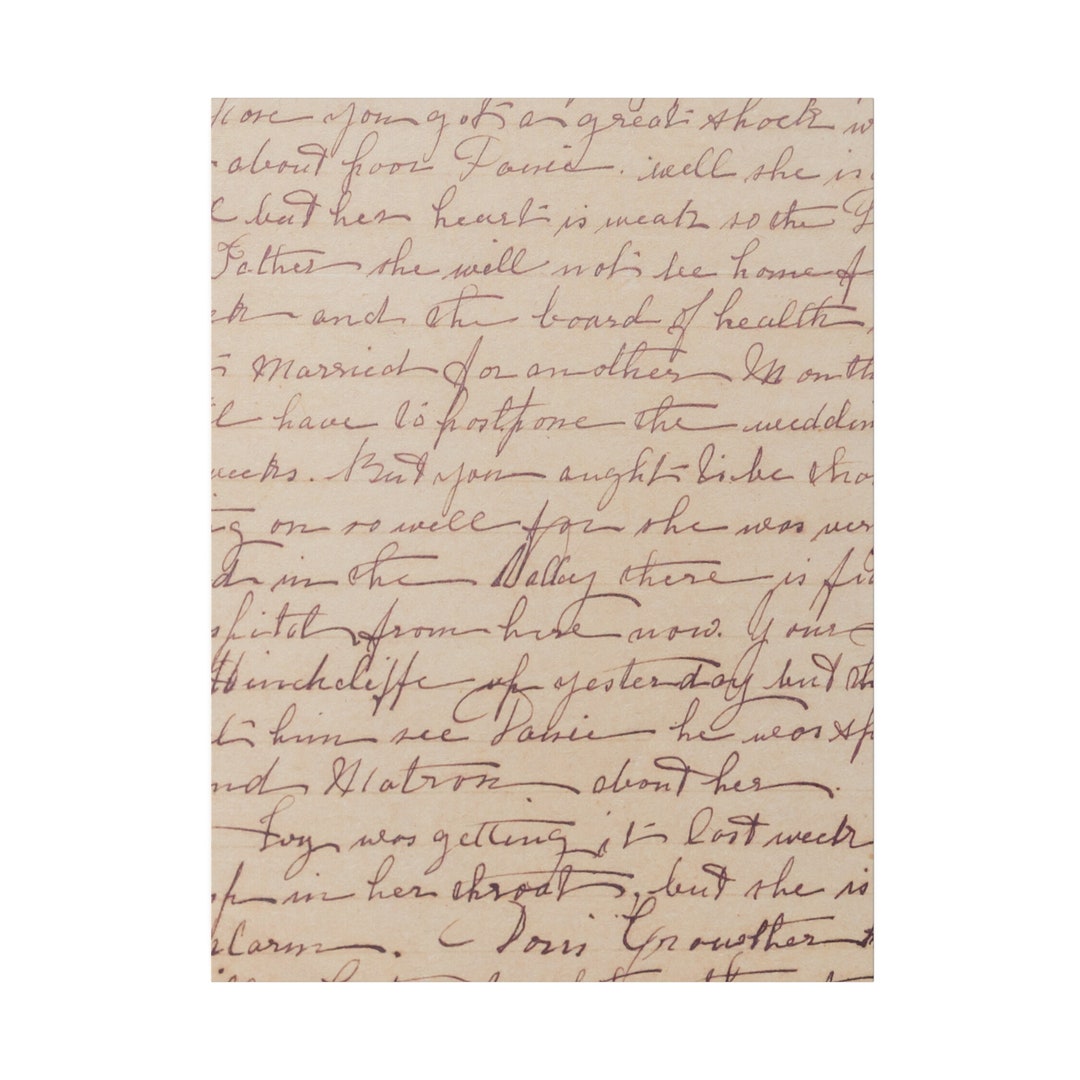 you got a great shock
about poor Fanie. well she is
but her heart is weak so the
Father she will not be home
and the board of health
Married for another Month
have to postpone the weddin
weeks. But you aught to be
on so well for she was ver
in the Valley there is
spital from here now. Your
Hinchcliffe up yesterday but th
him see Fanie he was sp
nd Matron about her.
Ivy was getting it last week
in her throat, but she is
alarm. Doris Growther